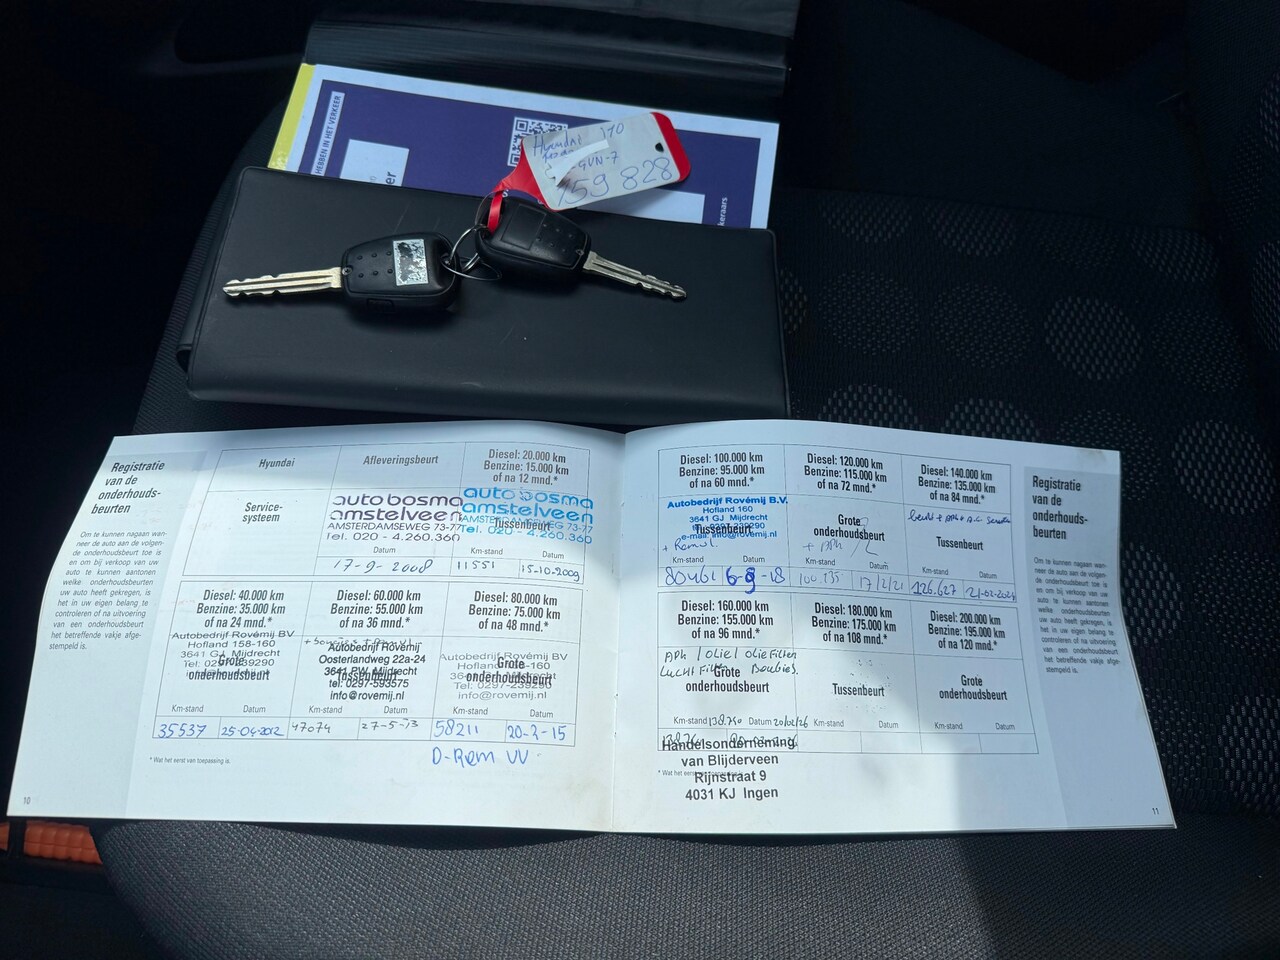 HEBBEN IN HET VERKEER
Hyundai i10
GVN-7
159 828
Registratie
van de
onderhouds-
beurten
Om te kunnen nagaan wan-
neer de auto aan de volgen-
de onderhoudsbeurt toe is
en om bij verkoop van uw
auto te kunnen aantonen
welke onderhoudsbeurten
uw auto heeft gekregen, is
het in uw eigen belang te
controleren of na uitvoering
van een onderhoudsbeurt
het betreffende vakje afge-
stempeld is.
Hyundai
Afleveringsbeurt
Diesel: 20.000 km
Benzine: 15.000 km
of na 12 mnd.*
Service-
systeem
autobosma
amstelveen
AMSTERDAMSEWEG 73-77
Tel. 020 - 4.260.360
Datum
17-9-2008
autobosma
amstelveen
AMSTERDAMSEWEG 73-77
Tussenbeurt
Tel. 020 - 4.260.360
Km-stand Datum
11551 15-10-2009
Diesel: 40.000 km
Benzine: 35.000 km
of na 24 mnd.*
Autobedrijf Rovémij BV
Hofland 158-160
3641 GJ Mijdrecht
Grote
Km-stand Datum
35537 25-04-2012
Diesel: 60.000 km
Benzine: 55.000 km
of na 36 mnd.*
Autobedrijf Rovémij
Oosterlandweg 22a-24
3641 PW Mijdrecht
tel: 0297-593575
info@rovemij.nl
Km-stand Datum
47074 27-5-13
Diesel: 80.000 km
Benzine: 75.000 km
of na 48 mnd.*
Autobedrijf Rovémij BV
Grote
onderhoudsbeurt
Tel: 0297-239290
info@rovemij.nl
Km-stand Datum
58211 20-3-15
D-Rem VV
* Wat het eerst van toepassing is.
10
Diesel: 100.000 km
Benzine: 95.000 km
of na 60 mnd.*
Autobedrijf Rovémij B.V.
Hofland 160
3641 GJ Mijdrecht
Tussenbeurt
e-mail: info@rovemij.nl
Km-stand Datum
80461 6-9-18
Diesel: 120.000 km
Benzine: 115.000 km
of na 72 mnd.*
Grote
onderhoudsbeurt
+ APK
Km-stand Datum
100135 17/2/21
Diesel: 140.000 km
Benzine: 135.000 km
of na 84 mnd.*
beurt + APK + A.C.
Tussenbeurt
Km-stand Datum
126.627 21-02-2024
Diesel: 160.000 km
Benzine: 155.000 km
of na 96 mnd.*
APK / Olie / olie Filter
Lucht Filter Bougies.
Grote
onderhoudsbeurt
Km-stand 138.750 Datum 20/02/26
Handelsonderneming
van Blijderveen
Rijnstraat 9
4031 KJ Ingen
Diesel: 180.000 km
Benzine: 175.000 km
of na 108 mnd.*
Tussenbeurt
Km-stand Datum
Diesel: 200.000 km
Benzine: 195.000 km
of na 120 mnd.*
Grote
onderhoudsbeurt
Km-stand Datum
* Wat het eerst
Registratie
van de
onderhouds-
beurten
Om te kunnen nagaan wan-
neer de auto aan de volgen-
de onderhoudsbeurt toe is
en om bij verkoop van uw
auto te kunnen aantonen
welke onderhoudsbeurten
uw auto heeft gekregen, is
het in uw eigen belang te
controleren of na uitvoering
van een onderhoudsbeurt
het betreffende vakje afge-
stempeld is.
11